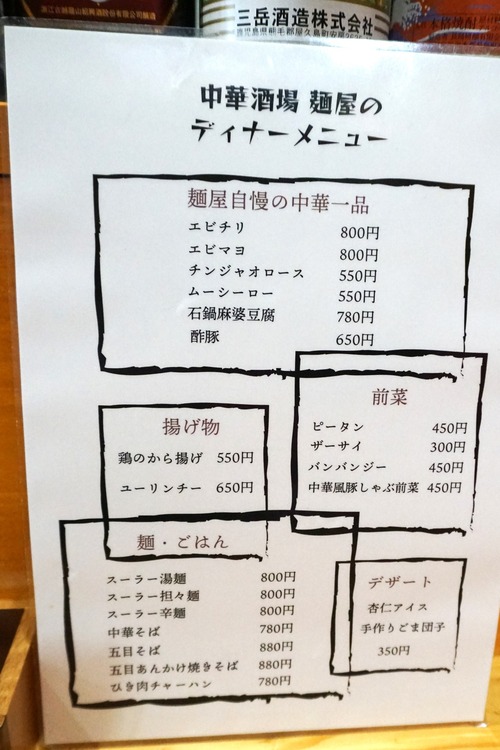 浙江古越龍山紹興酒股份有限公司醸造
三岳酒造株式会社
鹿児島県熊毛郡屋久島町安房2625
本格焼酎
中華酒場 麺屋の
ディナーメニュー
麺屋自慢の中華一品
エビチリ 800円
エビマヨ 800円
チンジャオロース 550円
ムーシーロー 550円
石鍋麻婆豆腐 780円
酢豚 650円
前菜
ピータン 450円
ザーサイ 300円
バンバンジー 450円
中華風豚しゃぶ前菜 450円
揚げ物
鶏のから揚げ 550円
ユーリンチー 650円
麺・ごはん
スーラー湯麺 800円
スーラー担々麺 800円
スーラー辛麺 800円
中華そば 780円
五目そば 880円
五目あんかけ焼きそば 880円
ひき肉チャーハン 780円
デザート
杏仁アイス
手作りごま団子
350円